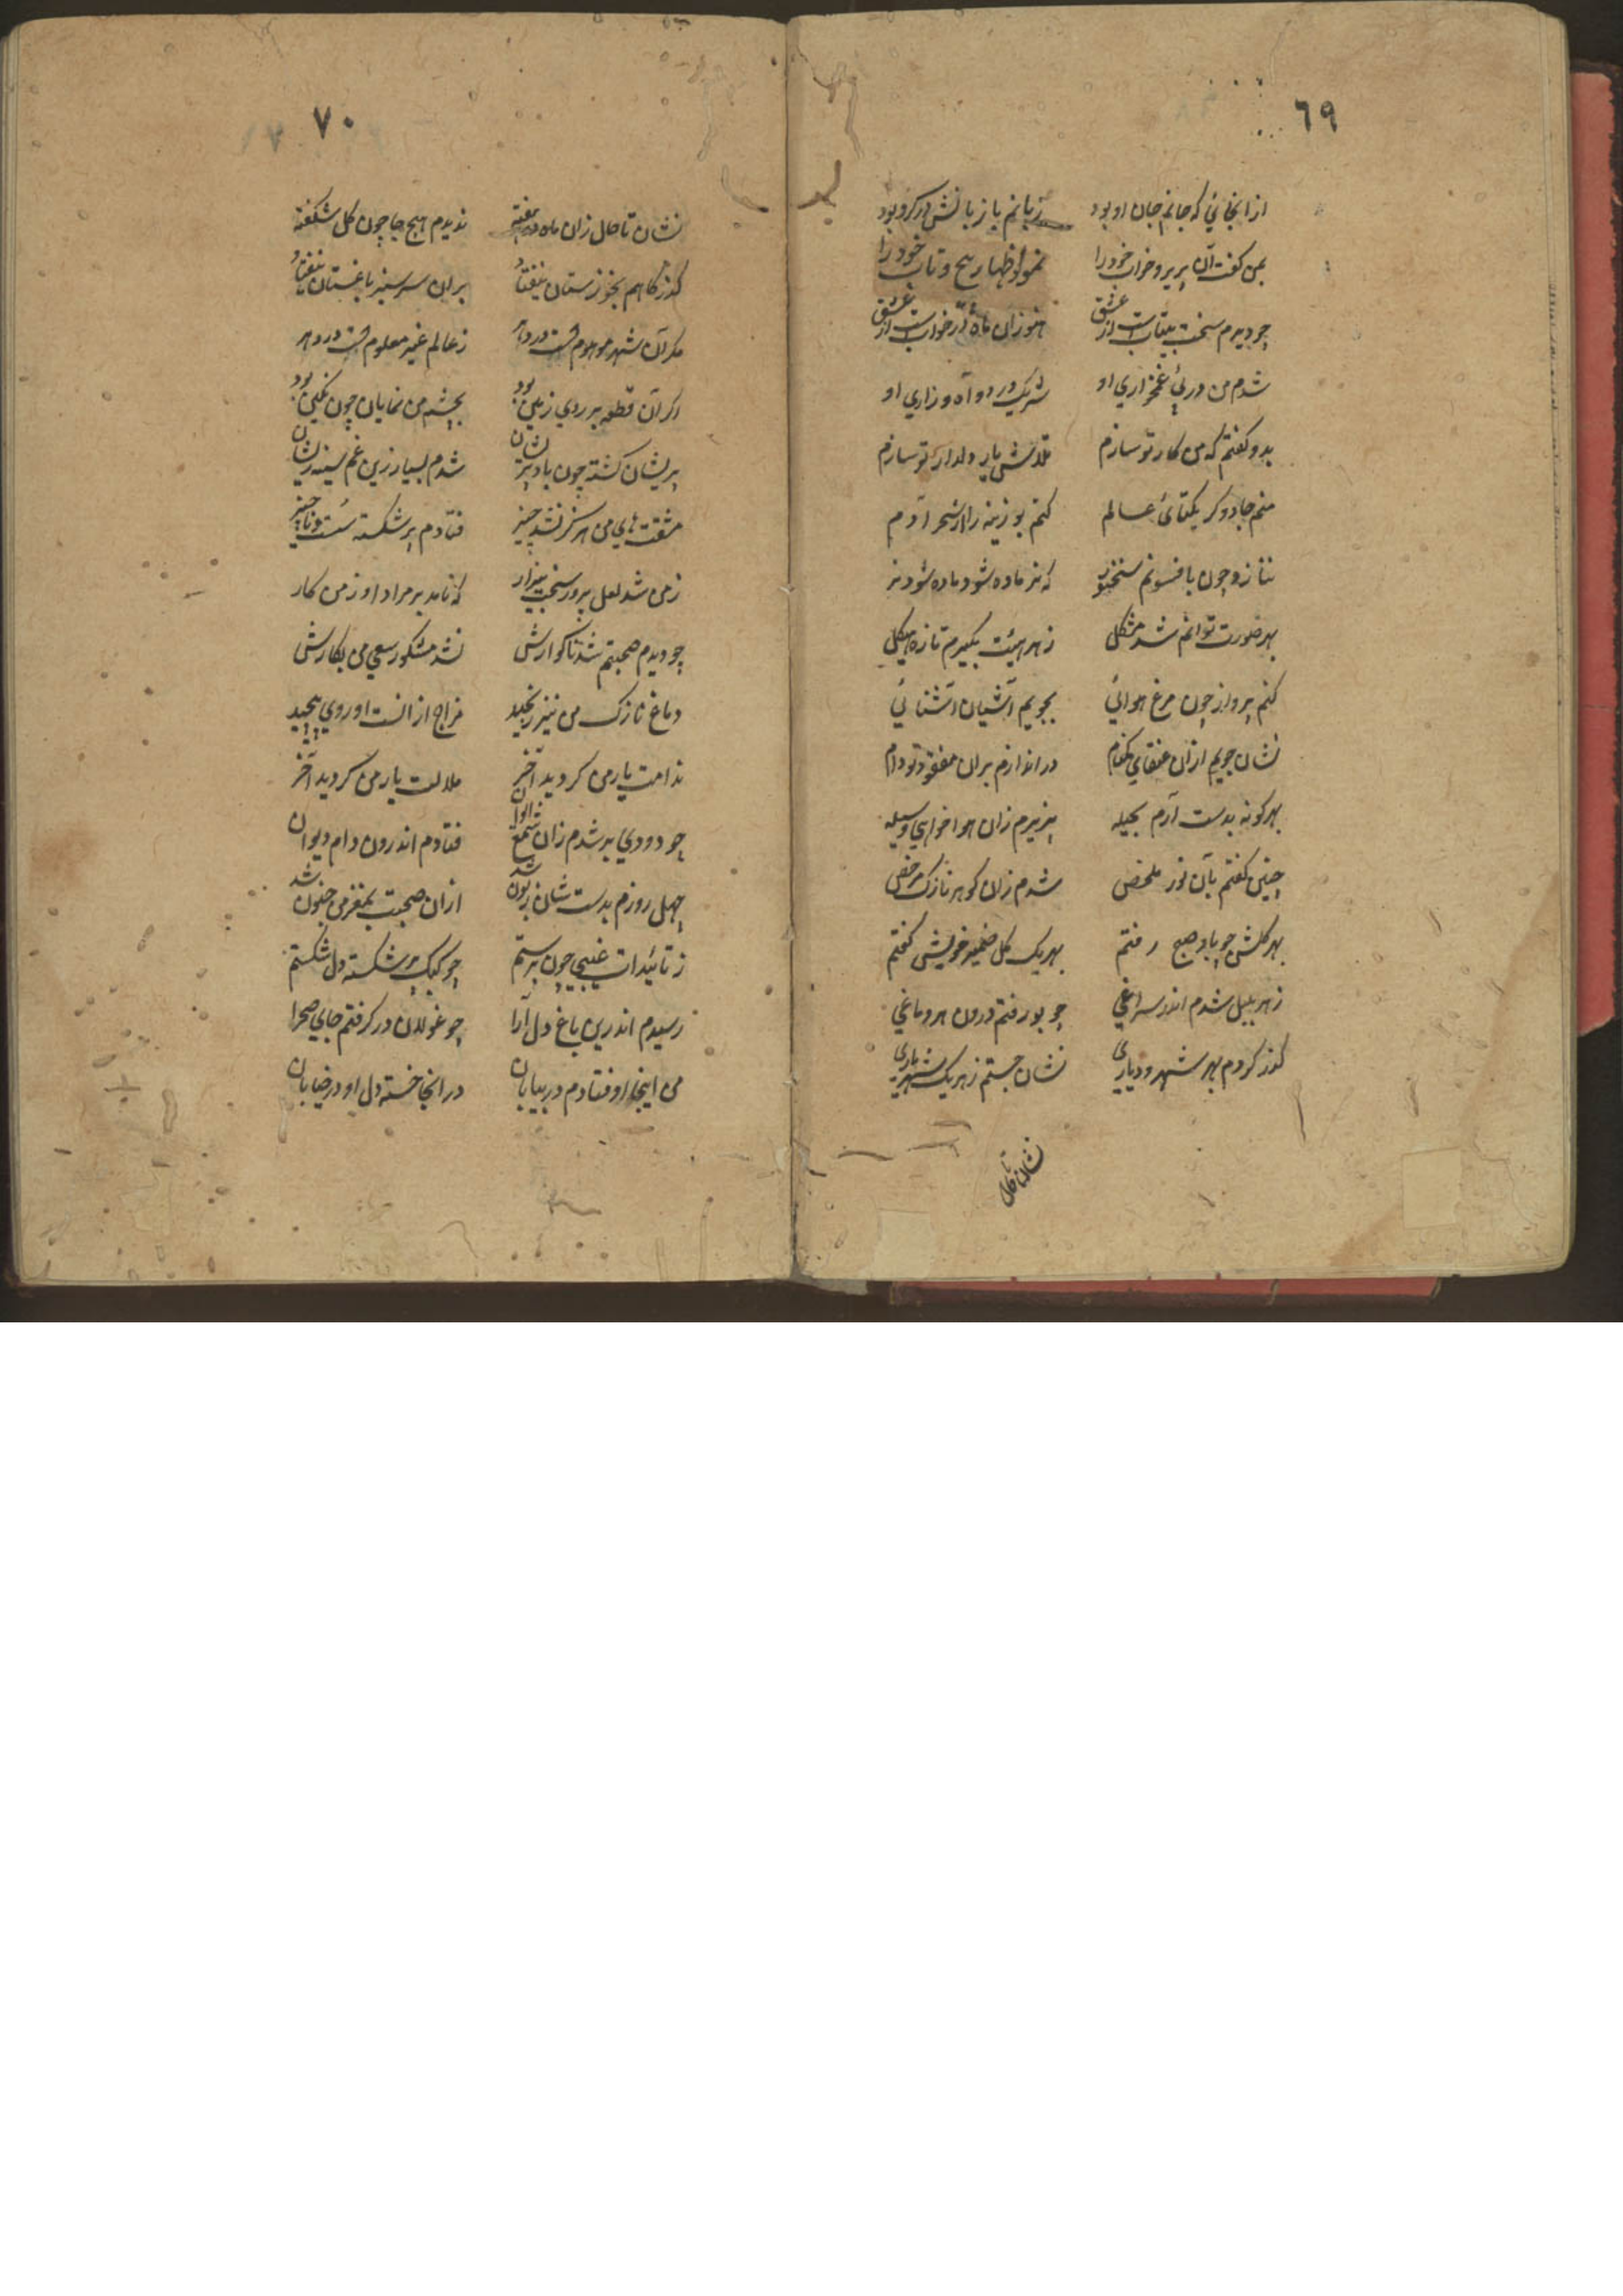 ٦٩
ازانجائي که جانم جان او بود زبانم با زبانش در کرو بود
بمن کفت آن پريرو خواب خود را نمود اظهار پيچ و تاب خود را
چو ديدم سخت بيتاب است از عشق هنوز آن ماه در خواب است از عشق
شدم من در پئ غمخواري او شريک درد و آه و زاري او
بدو کفتم که من کار تو سازم تلاش يار دلدار تو سازم
منم جادوکر يکتائ عالم کنم بوزينه را از سحر آدم
نر ماده شود ماده شود نر
بهر صورت توانم شد مشکل ز هر هيئت بکيرم تازه هيکل
کنم پرواز چون مرغ هوائي بجويم آشيان آشنائي
نشان جويم ازان عنقاي در اندازم بران مفقود تو دام
بهر کونه بدست آرم بحيله پذيرم زان هوا خواهي وسيله
چنين کفتم بآن نور ملخص شدم زان کوهر نازک مرخص
بهر کلشن چو باد صبح رفتم بهر يک کل ضمير خويش کفتم
ز هر بلبل شدم اندر سراغي چو بو رفتم درون هر دماغي
کذر کردم بهر شهر و دياري نشان جستم ز هر يک شهرياري
نشان تا حال
٧٠
نشان تا حال زان ماه دو هفته نديدم هيچ جا چون کل شکفته
کذر کاهم بخوزستان نيفتاد بران سرسبز باغستان نيفتاد
مکر آن شهر موهوم است در دهر ز عالم غير معلوم است در دهر
اکر آن قطعه بر روي زمين بود بچشم من نمايان چون نکين بود
پريشان کشته چون باد شدم بسيار زين غم سينه ريشان
مشقت هاي من هر کز نشد چيز فتادم پر شکسته سست و ناچيز
ز من شد لعل پرور سخت بيزار که نامد بر مراد او ز من کار
چو ديدم صحبتم شد ناکوارش نشد مشکور سعي من بکارش
دماغ نازک من نيز رنجيد مزاج از انست او روي پيچيد
ندامت يار من کرديد آخر ملالت يار من کرديد آخر
چو دودي بر شدم زان شمع فتادم اندرون دام ديوان
چهل روزم بدست شان زبون شد ازان صحبت بمغزم جنون شد
ز تائيدات غيبي چون برستم چو کبک پر شکسته دل شکستم
رسيدم اندرين باغ دل آرا چو غولان در کرفتم جاي صحرا
من اينجا اوفتادم در بيابان در انجا خسته دل او در خيابان